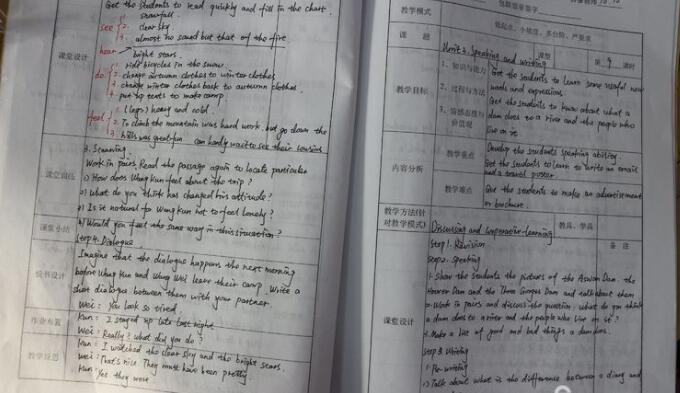 Get the students to read quickly and fill in the chart.
see 1. snowfall.
2. clear sky
3. almost no sound but that of the fire
hear
bright stars.
课堂设计
do 1. ride bicycles in the snow
2. change autumn clothes to winter clothes
3. change winter clothes back to autumn clothes.
4. put up tents to make camp
feel 1. (legs) heavy and cold.
2. To climb the mountain was hard work, but go down the
3. hills was great fun can hardly wait to see their cousins
3. Scanning.
课堂训练
Work in pairs. Read the passage again to locate particular
1) How does Wang Kun feel about the trip?
2) What do you think has changed his attitude?
3) Is it natural for Wang Kun not to feel lonely?
课堂小结
4) Would you feel the same way in this situation?
Step 4. Dialogue
板书设计
Imagine that the dialogue happens the next morning
before Wang Kun and Wang Wei leave their camp. Write a
short dialogue between them with your partner.
Wei: You look so tired.
作业布置
Kun: I stayed up late last night
Wei: Really? What did you do?
Kun: I watched the clear sky and the bright stars.
教学反思
Wei: That's nice. They must have been pretty.
Kun: Yes. they were
教学模式
低起点、小坡度、多台阶、严要求
课 题
Unit 3. Speaking and writing
课型
第 9 课时
教学目标
1、知识与能力
Get the students to learn some useful new
words and expressions.
2、过程与方法
Get the students to know about what a
dam does to a river and the people who
3、情感态度与价值观
live on it
内容分析
教学重点
Develop the students speaking ability.
Get the students to learn to write an email
and a travel poster.
教学难点
Get the students to make an advertisement
or brochure.
教学方法(针对教学模式)
Discussing and cooperative learning
教具、学具
课堂设计
备 注
Step 1. Revision
Step 2. Speaking
1. Show the students the pictures of the Aswan Dam, the
Hoover Dam and the Three Gorges Dam and talk about them
2. Work in pairs and discuss the question, what do you think
a dam does to a river and the people who live on it?
3. Make a list of good and bad things a dam does.
Step 3. Writing
1. Pre-writing
1) Talk about what is the difference between a diary and